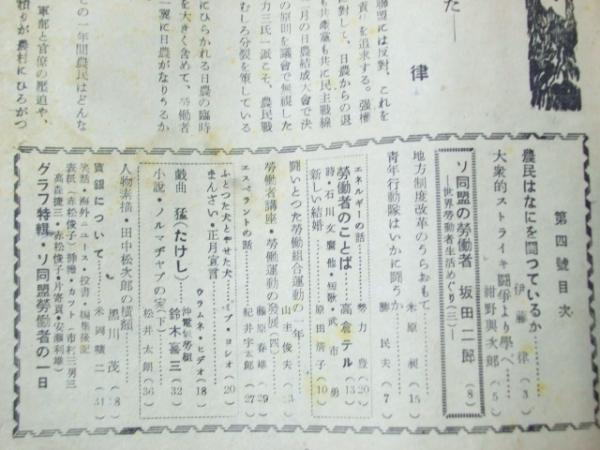 聯盟には反對、これを
責任を追求する。强權
に對して、日農からの退
も共產黨も共に民主戰線
二月の日農結成大會で決
の原則を議會で無視した
力三氏一派こそ、農民戰
むしろ分裂を策している
にひらかれる日農の臨時
を大きく含めて、勞働者
一翼に日農がなりうるか
この一年間農民はどんな
軍部と官僚の壓迫や、
賴りが農村にひろがつ
た——
律
第四號目次
農民はなにを鬪つているか 伊藤律(3)
大衆的ストライキ鬪爭より學べ 紺野與次郎(5)
ソ同盟の勞働者 坂田二郎(8)
—世界勞働者生活めぐり(三)—
地方制度改革のうらおもて 米原昶(15)
靑年行動隊はいかに鬪うか 勝民夫(7)
エネルギーの話 勢力豊(20)
勞働者のことば 高倉テル(13)
時・石川文 短歌・武市勇
新しい結婚 原田廣子(10)
鬪いとつた勞働組合運動の一年 山主俊夫
勞働者講座・勞働運動の發展(四) 藤原春雄(29)
エスペラントの話 紀井宇太郎(27)
ふとつた犬とやせた犬 イブ・ヨシオ(20)
まんざい・正月宣言 ウラムネ・ヒデオ(18)
戯曲 猛(たけし) 沖電氣勞組 鈴木喜三(32)
小說・ノルマヂヤの家(下) 松井太朗(36)
人物素描・田中松次郎の橫顏 黑川茂
賃銀について 米岡曠二(31)
笑話・海外ニュース・投書・編集後記
表紙(赤松俊子)揷繪・カット(市村三男三
高森捷三・赤松俊子・片寄貢・安藤利雄)
グラフ特輯・ソ同盟勞働者の一日